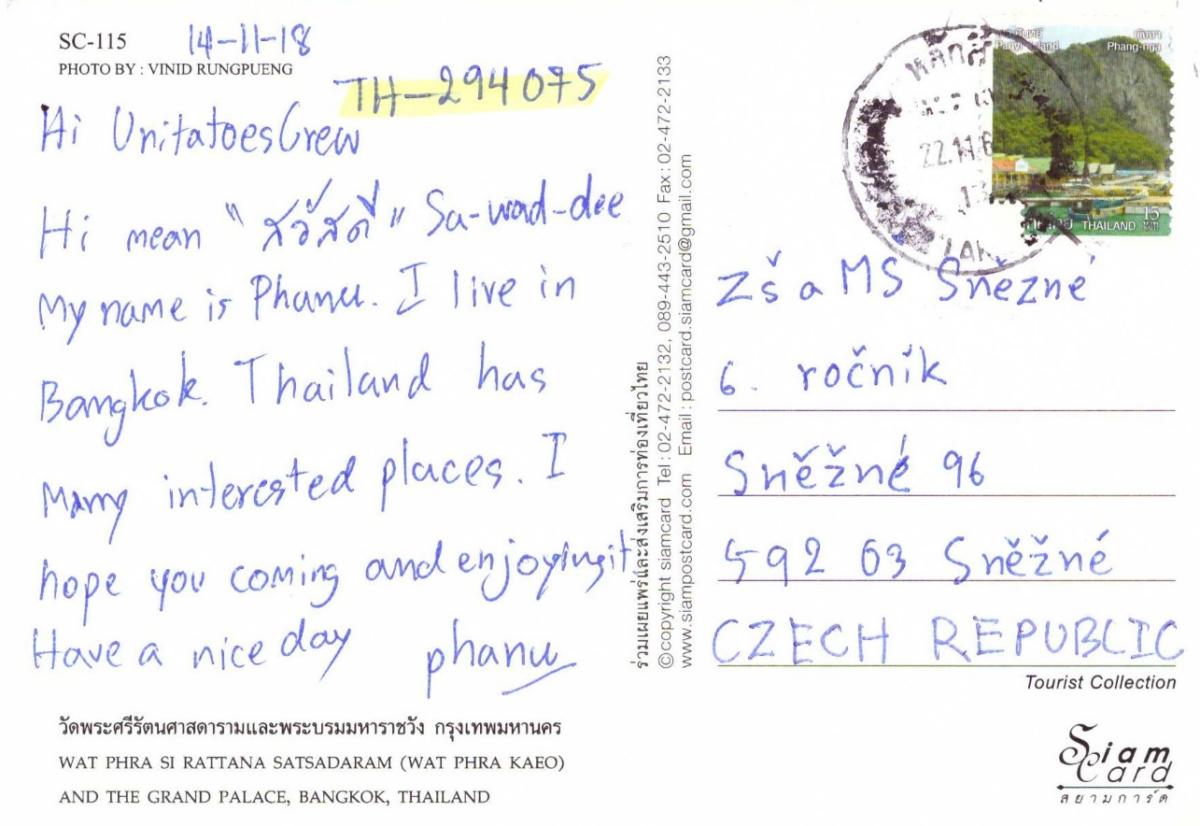 SC-115
14-11-18
PHOTO BY : VINID RUNGPUENG
TH-294075
Hi UnitatoesCrew
Hi mean "สวัสดี" Sa-wad-dee
My name is Phanu. I live in
Bangkok. Thailand has
Many interested places. I
hope you coming and enjoyingit.
Have a nice day phanu
วัดพระศรีรัตนศาสดารามและพระบรมมหาราชวัง กรุงเทพมหานคร
WAT PHRA SI RATTANA SATSADARAM (WAT PHRA KAEO)
AND THE GRAND PALACE, BANGKOK, THAILAND
ร่วมเผยแพร่และส่งเสริมการท่องเที่ยวไทย
©copyright siamcard Tel : 02-472-2132, 089-443-2510 Fax : 02-472-2133
www.siampostcard.com Email : postcard.siamcard@gmail.com
Panyi Island
พังงา
Phang-nga
22.11.6
15
THAILAND
ZŠ a MŠ Sněžné
6. ročník
Sněžné 96
592 03 Sněžné
CZECH REPUBLIC
Tourist Collection
Siam Card
สยามการ์ด